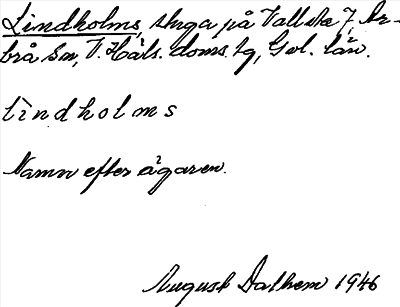 Lindholms, stuga på Vallsta 7, Ar-
brå sn, V. Häls. doms. tg, Gvl. län.
lìndholms
Namn efter ägaren.
August Dalhem 1946